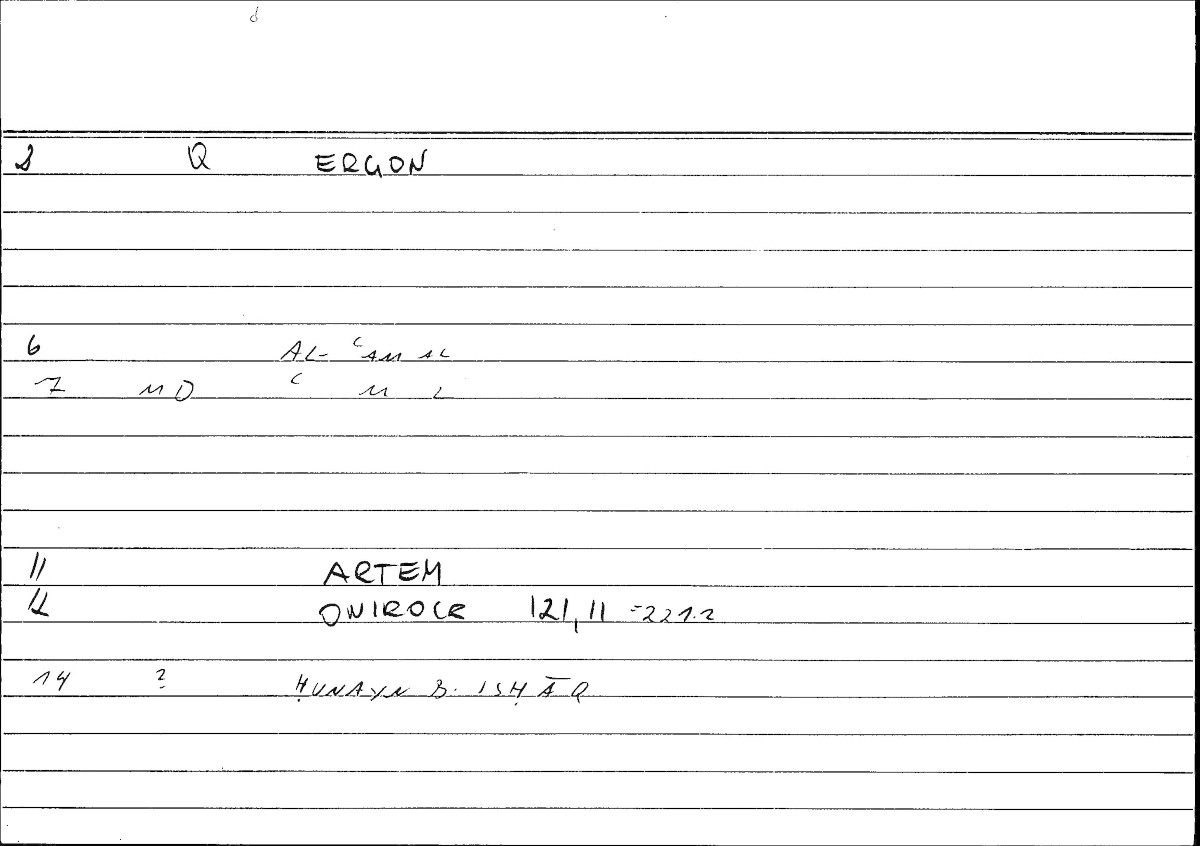 2 Q ERGON
6 AL- ʿAMAL
7 MD ʿ M L
11 ARTEM
12 ONIROCR 121,11 =221.2
14 ? ḤUNAYN B. ISḤĀQ